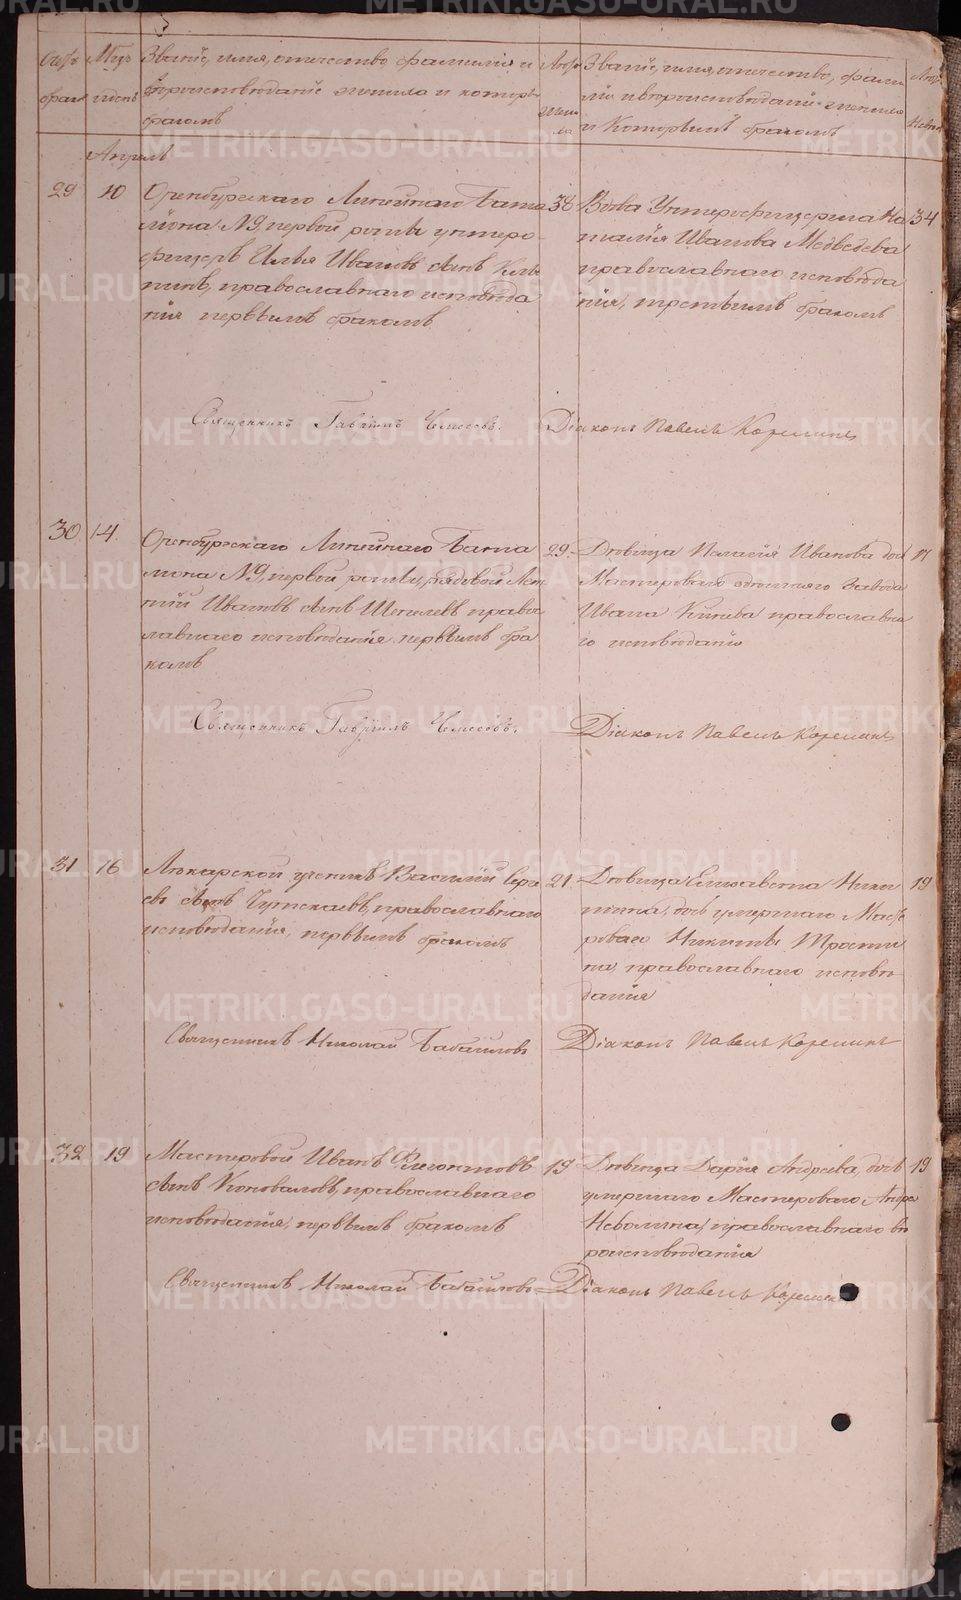 Званiе, имя, отчество фамилiя и
вѣроисповѣданiе жениха и которы
бракомъ
Званiе, имя, отчество, фами
лiя и вѣроисповѣданiе невѣсты
и которымъ бракомъ
Апрель
29 10 Оренбургскаго Линейнаго Бата
лiона №9, первой роты унтеро-
фицеръ Илья Ивановъ сынъ
православнаго исповѣда
нiя первымъ бракомъ
38
Вдова Унтерофицерша На
талiя Иванова Медведева
православнаго исповѣда
нiя, третьимъ бракомъ
34
Священникъ Гаврiилъ
Дiаконъ Павелъ
30 14. Оренбургскаго Линейнаго Бата
лiона №9, первой роты, рядовой
Ивановъ сынъ право
славнаго исповѣданiя первымъ бра
комъ
29
Дѣвица Палагiя Иванова дочь
Мастероваго Завода
Ивана православна
го исповѣданiя
17
Священникъ Гаврiилъ
Дiаконъ Павелъ
31 16 Лѣкарской ученикъ Василiй
сынъ православнаго
исповѣданiя, первымъ бракомъ
21.
Дѣвица Елисавета Ники
тина, дочь умершаго Масте
роваго Никиты
православнаго исповѣ
данiя
19
Священникъ Николай
Дiаконъ Павелъ
32 19 Мастеровой Иванъ
сынъ Коноваловъ, православнаго
исповѣданiя, первымъ бракомъ
19
Дѣвица Дарiя Андреева, дочь
умершаго Мастероваго Андре
православнаго вѣ
роисповѣданiя
19
Священникъ Николай
Дiаконъ Павелъ
METRIKI.GASO-URAL.RU